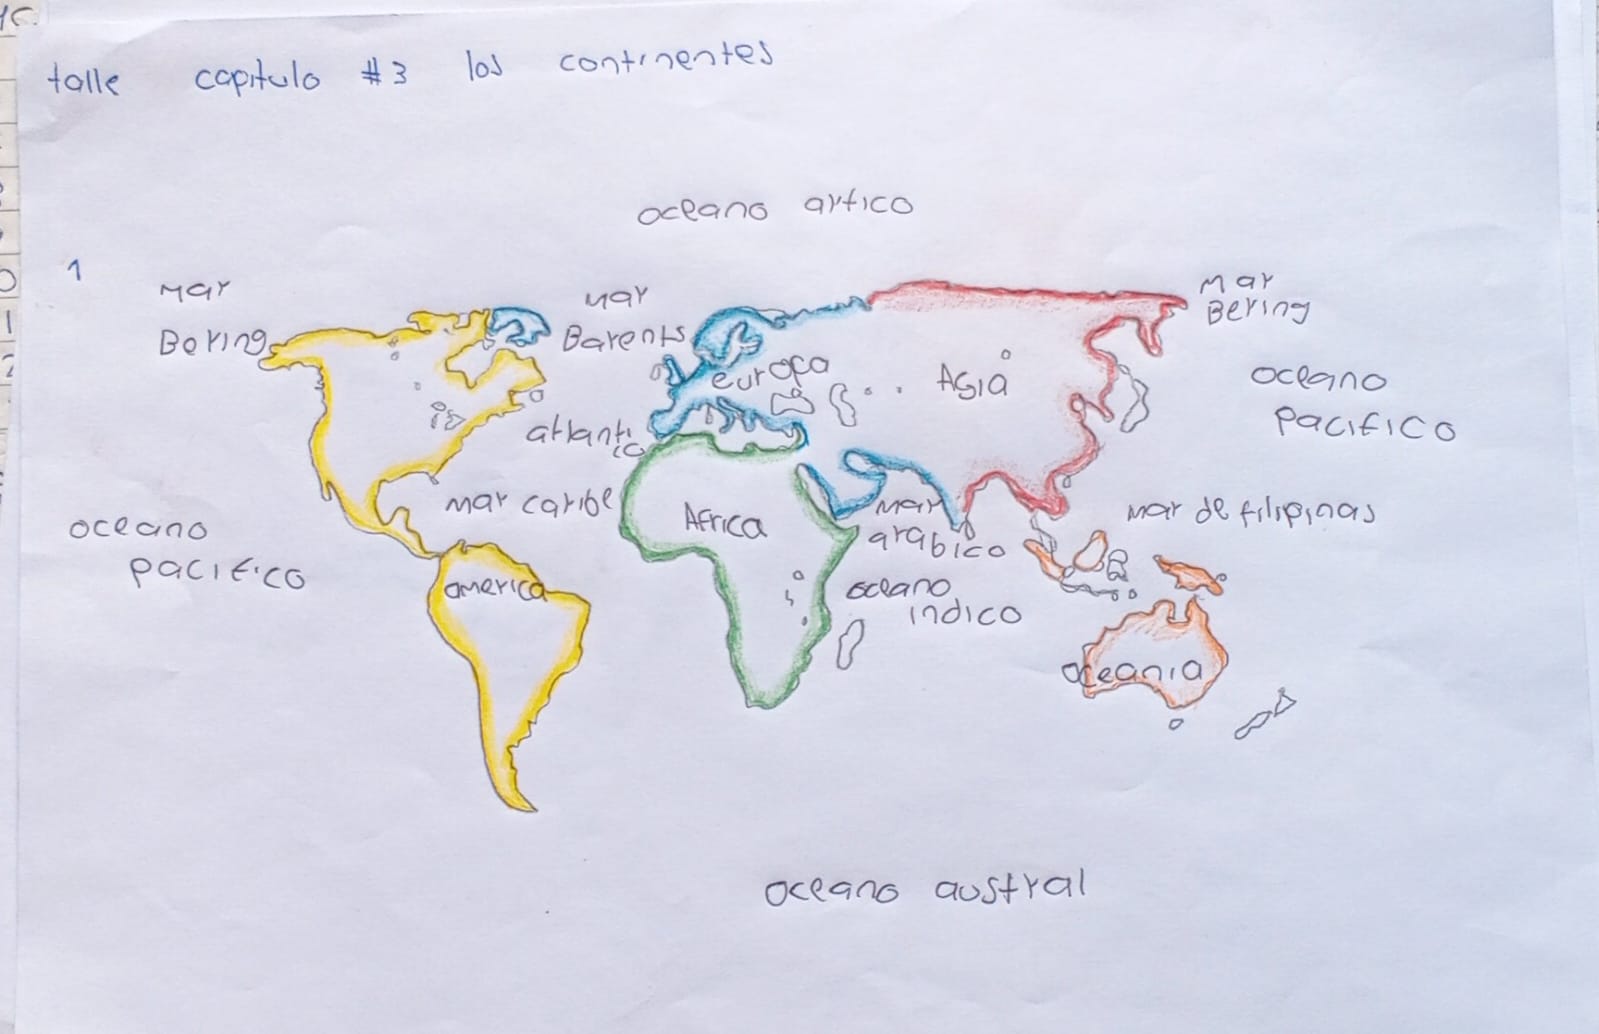 talle capitulo #3 los continentes
oceano artico
1
Mar
Bering
Mar
Barents
Mar
Bering
europa
Asia
oceano
pacifico
atlanti
ic
mar caribe
Africa
mar
arabico
mar de filipinas
oceano
pacifico
america
oceano
indico
oceania
oceano austral